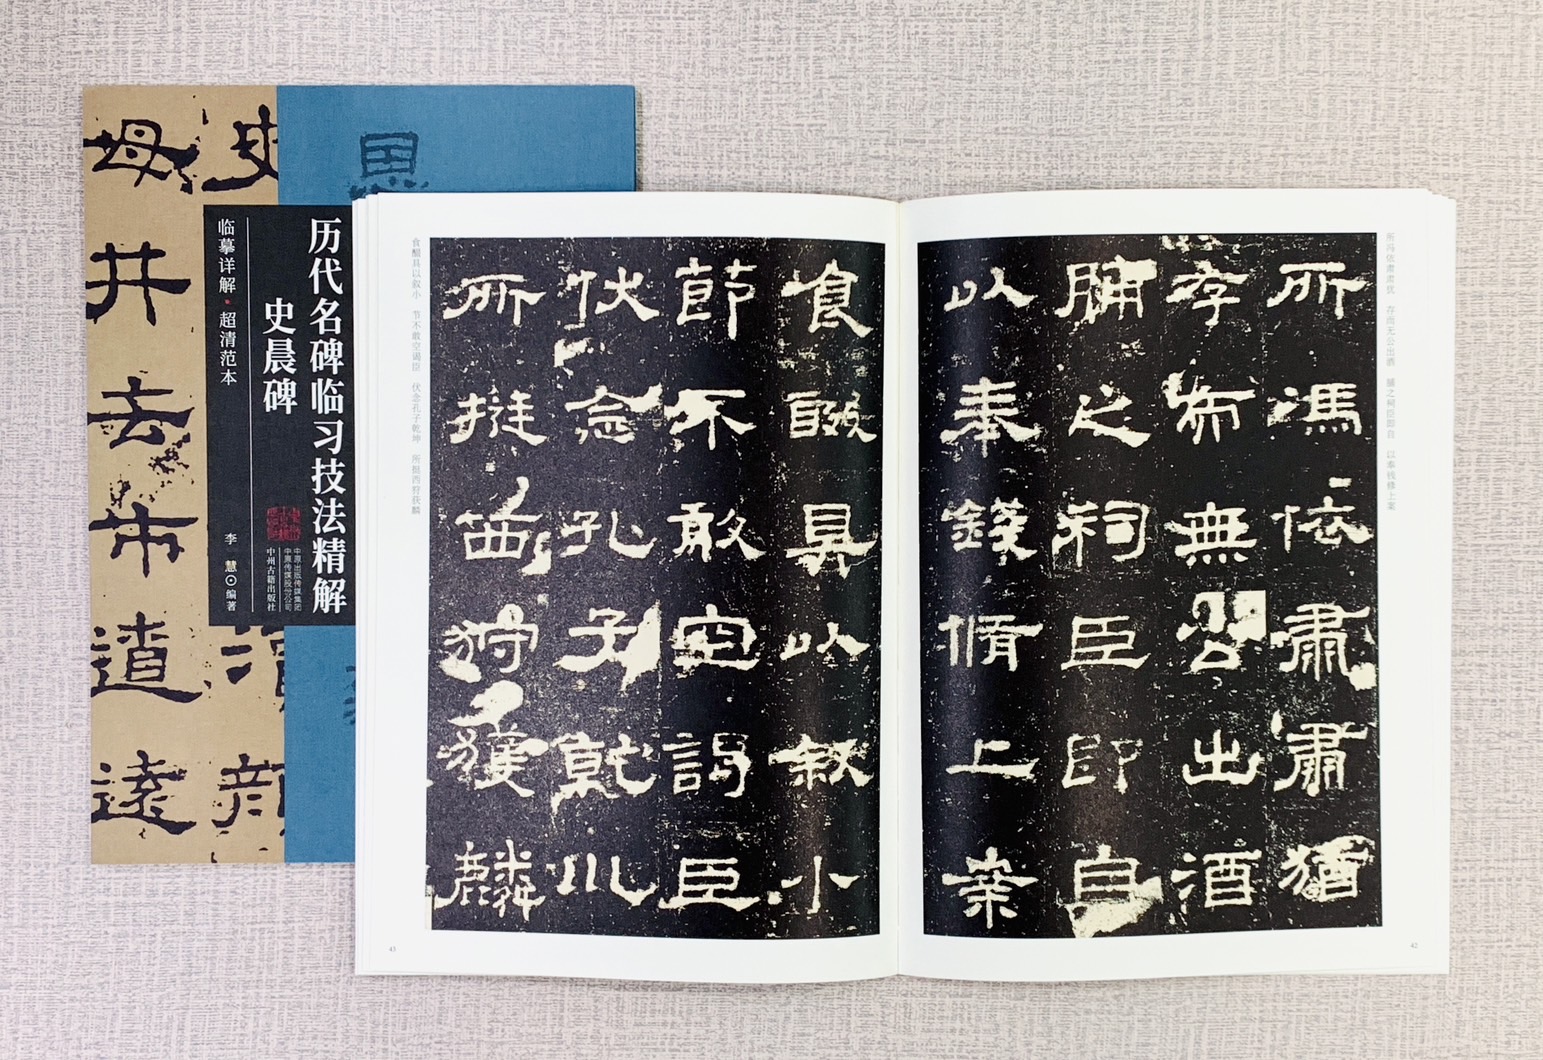 历代名碑临习技法精解
史晨碑
临摹详解·超清范本
李 慧⊙编著
中原出版传媒集团
中原传媒股份公司
中州古籍出版社
思
史
瀆顔
母井去市遼遠
所冯依肃肃犹 存而无公出酒 脯之祠臣即自 以奉钱修上案
所馮依肅肅猶
存而無公出酒
脯之祠臣即自
以奉錢脩上案
42
食醊具以叙小
節不敢空謁臣
伏念孔子乾川
所挺西狩獲麟
食醊具以叙小 节不敢空谒臣 伏念孔子乾坤 所挺西狩获麟
43